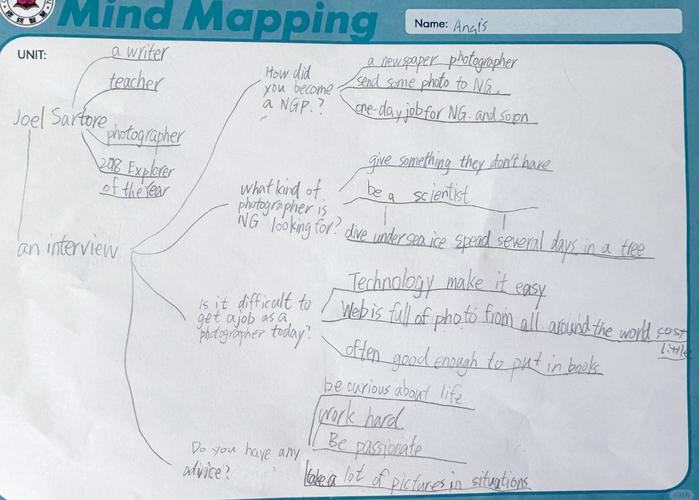 Mind Mapping
Name: Anais
UNIT:
a writer
teacher
Joel Sartore
photographer
2018 Explorer
of the Year
an interview
How did
you become
a NGP.?
a newspaper photographer
send some photo to NG.
one-day job for NG. and so on
what kind of
photographer is
NG looking for?
give something they don't have
be a scientist
dive under sea ice spend several days in a tree
Is it difficult to
get a job as a
photographer today?
Technology make it easy
Web is full of photo from all around the world cost
little
often good enough to put in books
Do you have any
advice?
be curious about life
work hard
Be passionate
take a lot of pictures in situations